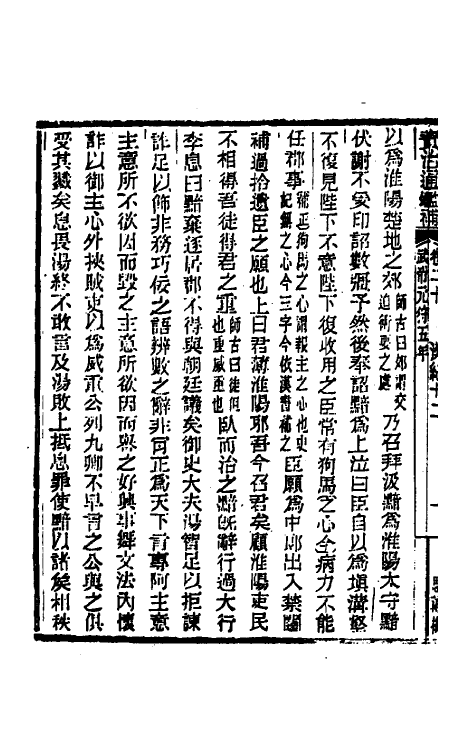 資治通鑑補 卷二十 漢紀十二
武帝元狩五年
以爲淮陽楚地之郊師古曰郊謂交迫衝要之處乃召拜汲黯爲淮陽太守黯
伏謝不受印詔數彊予然後奉詔黯爲上泣曰臣自以爲塡溝壑
不復見陛下不意陛下復收用之臣常有狗馬之心今病力不能
任郡事補正狗馬之心謂報主之心也史記缺之心今三字今依漢書補之臣願爲中郎出入禁闥
補過拾遺臣之願也上曰君薄淮陽邪吾今召君矣顧淮陽吏民
不相得吾徒得君之重師古曰徒但也重威重也臥而治之黯旣辭行過大行
李息曰黯棄逐居郡不得與朝廷議矣御史大夫湯智足以拒諫
詐足以飾非務巧佞之語辨數之辭非肯正爲天下言專阿主意
主意所不欲因而毀之主意所欲因而譽之好興事舞文法內懷
詐以御主心外挾賊吏以爲威重公列九卿不早言之公與之俱
受其戮矣息畏湯終不敢言及湯敗上抵息罪使黯以諸侯相秩